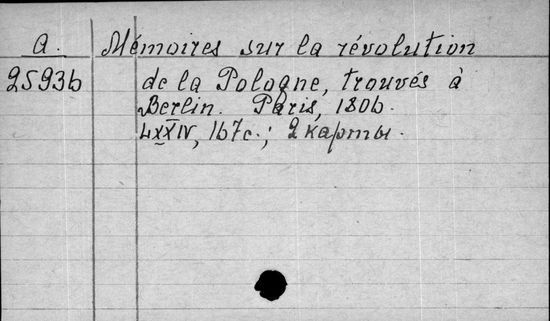 a. Mémoires sur la révolution
25936 de la Pologne, trouvés à
Berlin. Paris, 1806.
LXXIV, 167с.; 2 карты.